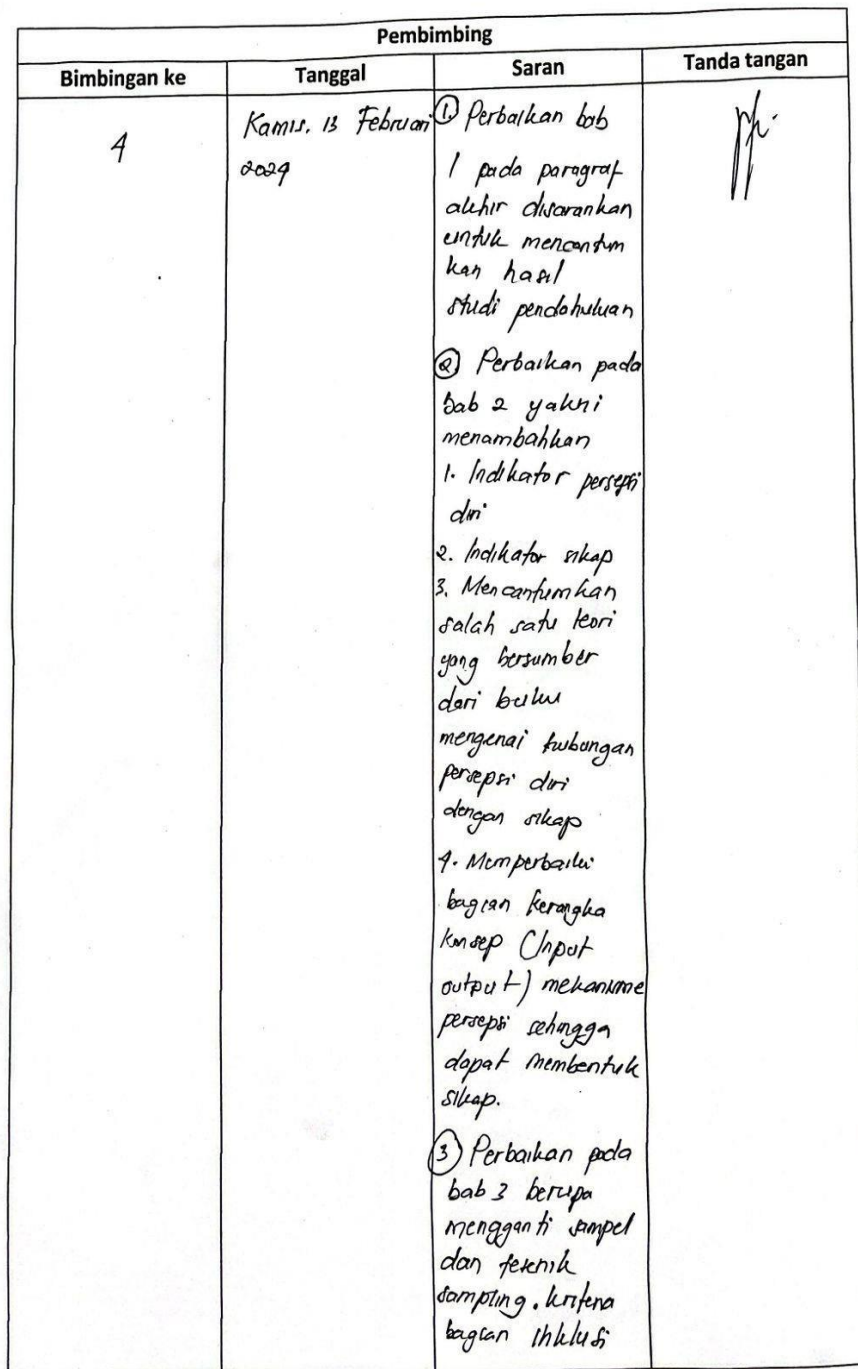 Pembimbing
Bimbingan ke Tanggal Saran Tanda tangan
4
Kamis, 13 Februari
2024
1. Perbaikan bab
1 pada paragraf
akhir disarankan
untuk mencantum
kan hasil
studi pendahuluan
2 Perbaikan pada
bab 2 yakni
menambahkan
1. Indikator persepsi
diri
2. Indikator sikap
3. Mencantumkan
salah satu teori
yang bersumber
dari buku
mengenai hubungan
persepsi diri
dengan sikap
4. Memperbaiki
bagian kerangka
konsep (Input
output) mekanisme
persepsi sehingga
dapat membentuk
sikap.
3 Perbaikan pada
bab 3 berupa
mengganti sampel
dan teknik
sampling. kriteria
bagian inklusi